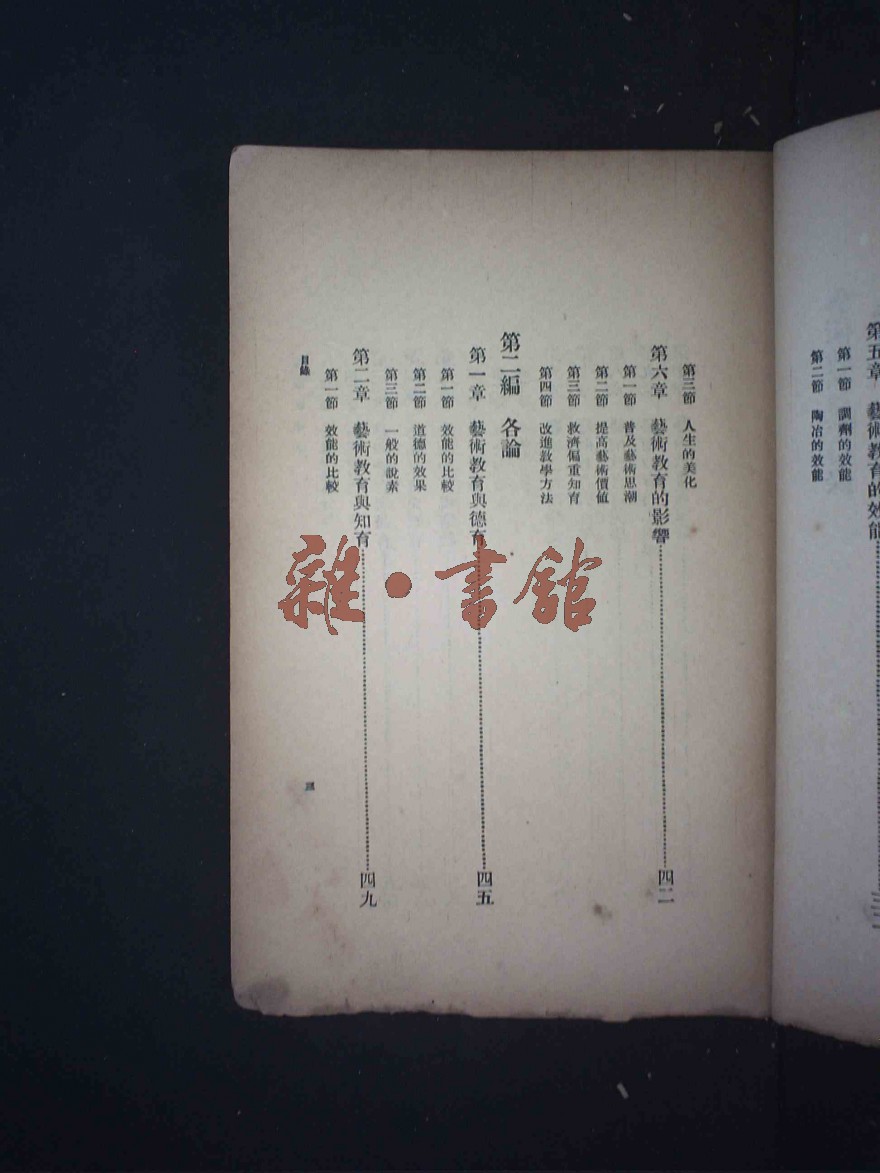 第五章 藝術教育的效能
第一節 調劑的效能
第二節 陶冶的效能
第三節 人生的美化
第六章 藝術教育的影響 四二
第一節 普及藝術思潮
第二節 提高藝術價値
第三節 救濟偏重知育
第四節 改進教學方法
第二編 各論
第一章 藝術教育與德育 四五
第一節 效能的比較
第二節 道德的效果
第三節 一般的說素
第二章 藝術教育與知育 四九
第一節 效能的比較
目錄 三
雜·書館